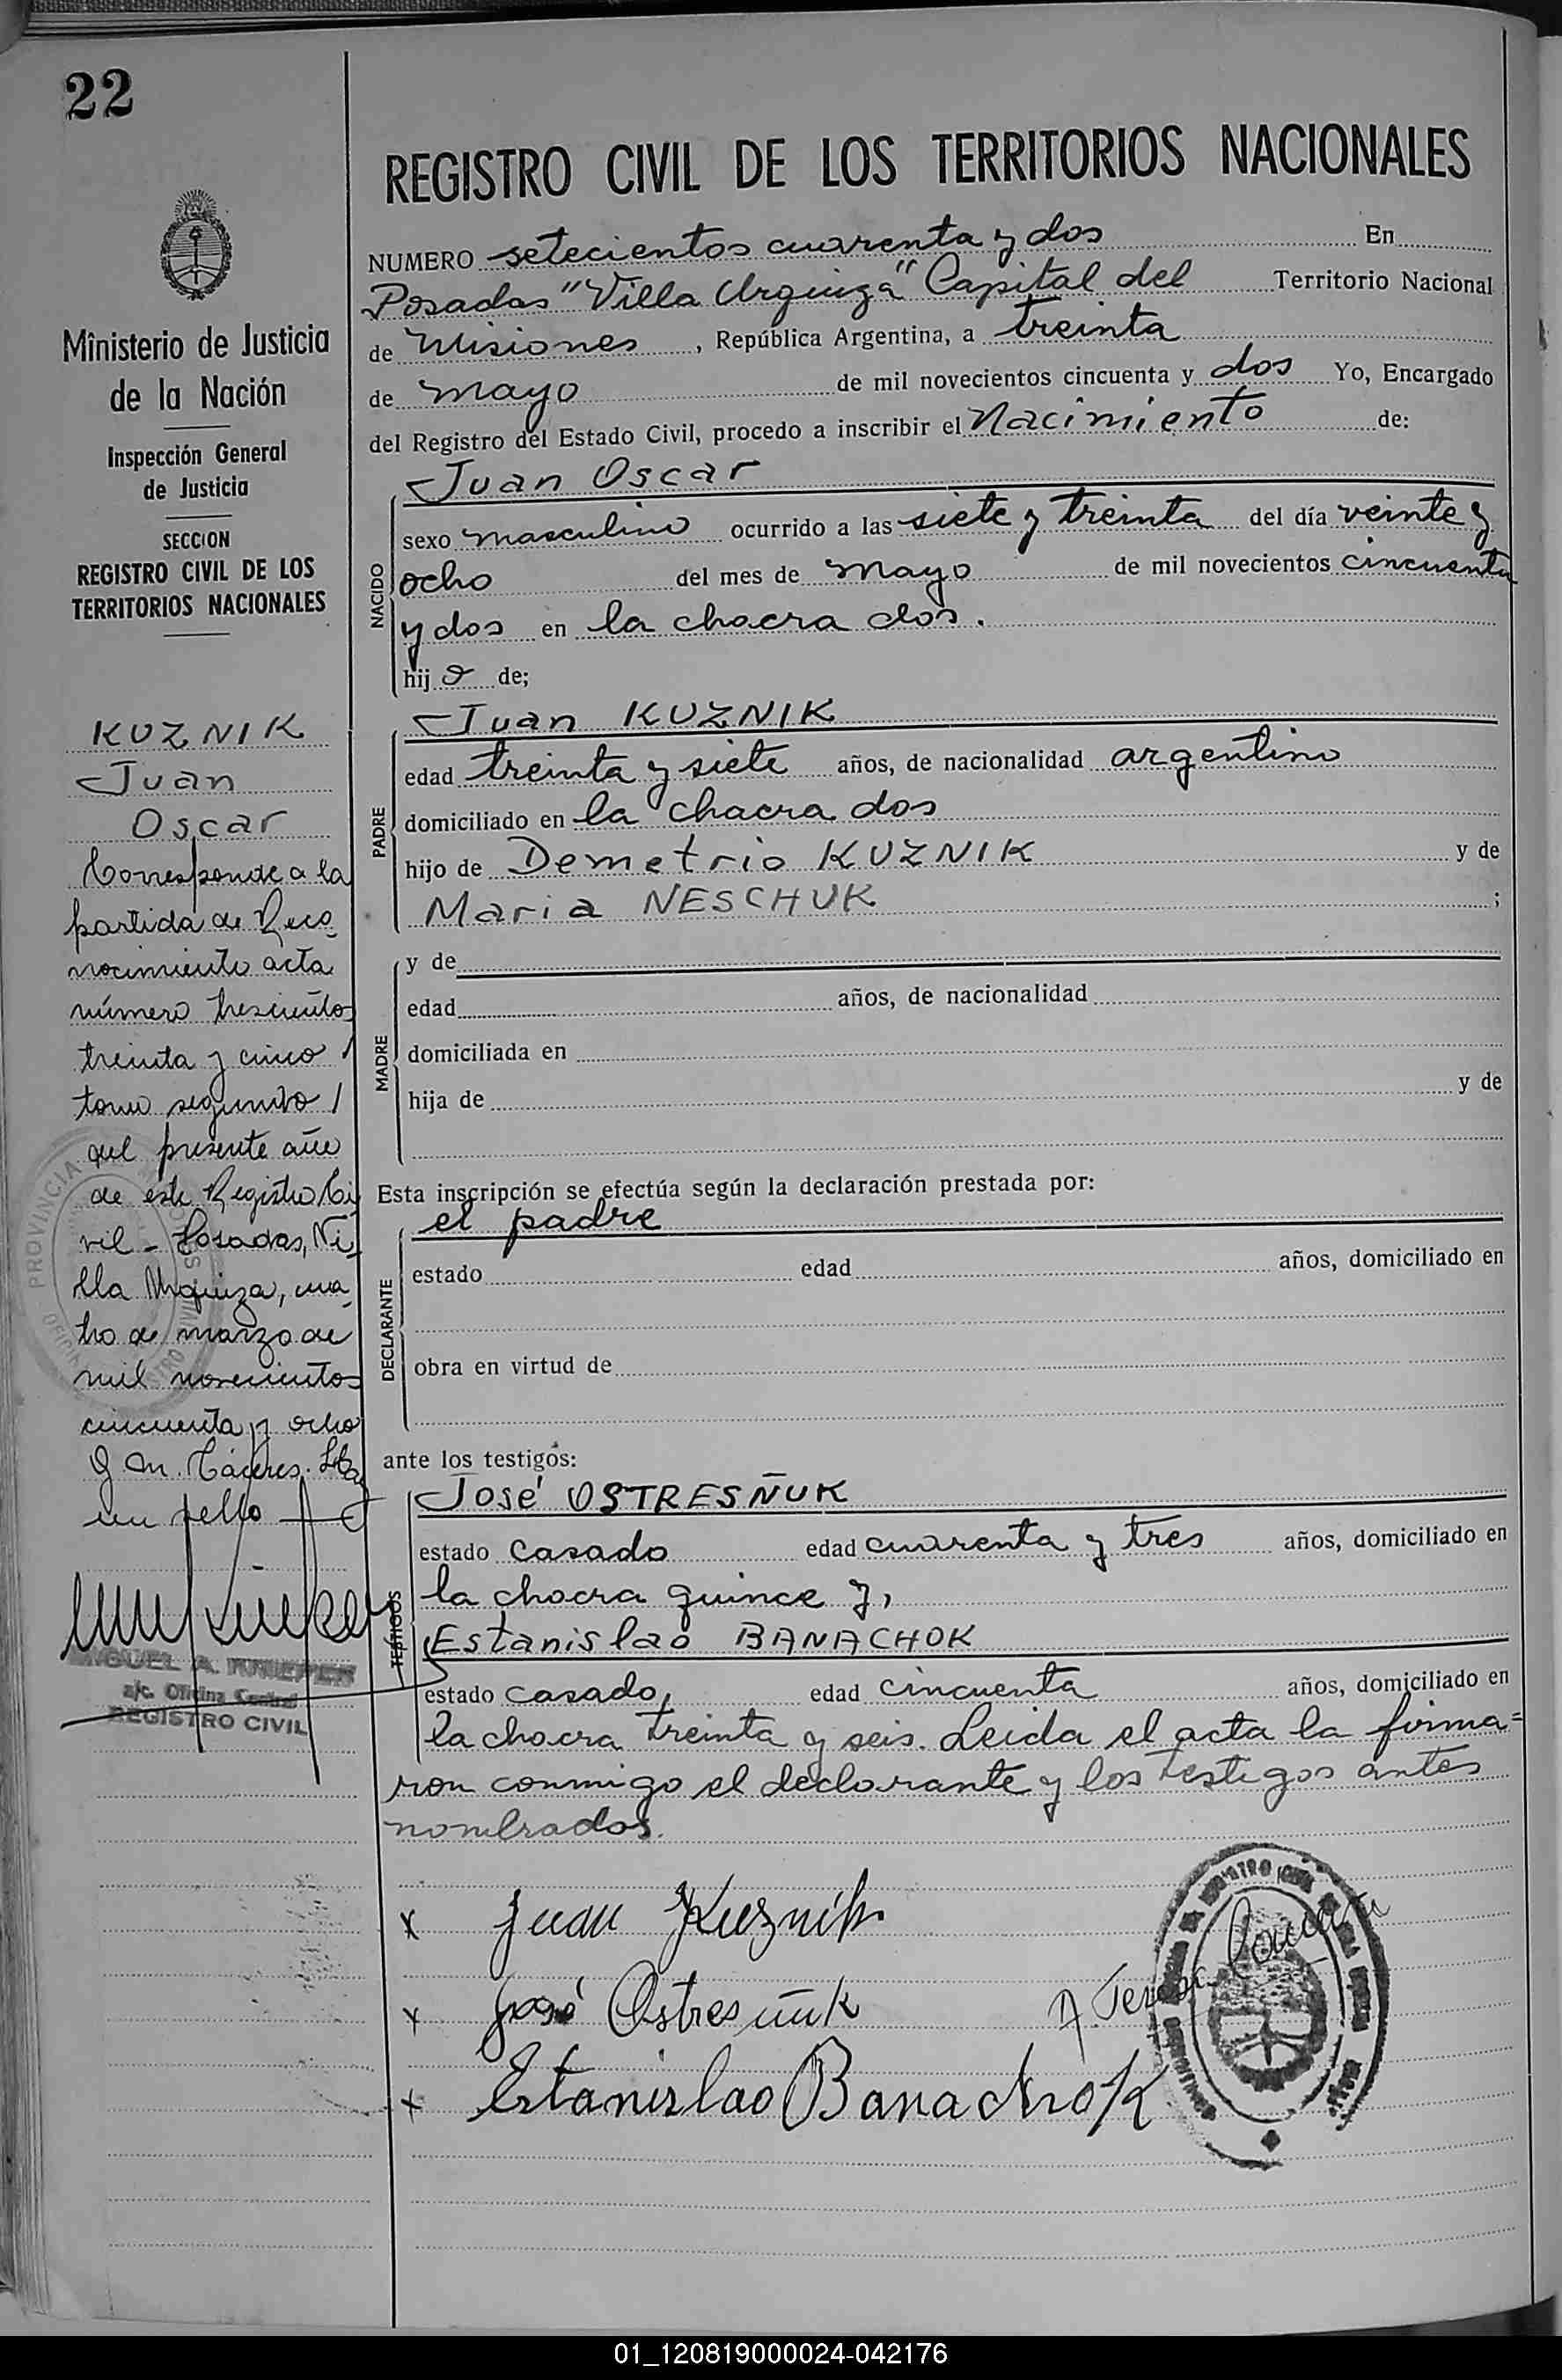 22
REGISTRO CIVIL DE LOS TERRITORIOS NACIONALES
NUMERO setecientos cuarenta y dos En
Posadas "Villa Urquiza" Capital del Territorio Nacional
de Misiones, República Argentina, a treinta
de mayo de mil novecientos cincuenta y dos Yo, Encargado
del Registro del Estado Civil, procedo a inscribir el Nacimiento de:
Juan Oscar
NACIDO
sexo masculino ocurrido a las siete y treinta del día veinte y
ocho del mes de mayo de mil novecientos cincuenta
y dos en la chacra dos.
hijo de;
PADRE
Juan KUZNIK
edad treinta y siete años, de nacionalidad argentino
domiciliado en la chacra dos
hijo de Demetrio KUZNIK y de
Maria NESCHUK ;
MADRE
y de
edad años, de nacionalidad
domiciliada en
hija de y de
Esta inscripción se efectúa según la declaración prestada por:
DECLARANTE
el padre
estado edad años, domiciliado en
obra en virtud de
ante los testigos:
TESTIGOS
José OSTRESÑUK
estado casado edad cuarenta y tres años, domiciliado en
la chacra quince y,
Estanislao BANACHOK
estado casado, edad cincuenta años, domiciliado en
la chacra treinta y seis. Leida el acta la firma=
ron conmigo el declarante y los testigos antes
nombrados.
x Juan Kuznik
x José Ostresñuk
x Estanislao Banachok
Ministerio de Justicia
de la Nación
Inspección General
de Justicia
SECCION
REGISTRO CIVIL DE LOS
TERRITORIOS NACIONALES
KUZNIK
Juan
Oscar
Corresponde a la
partida de Reco-
nocimiento acta
número trescientos
treinta y cinco /
tomo segundo /
del presente año
de este Registro Ci-
vil - Posadas, Vi-
lla Urquiza, cua-
tro de marzo de
mil novecientos
cincuenta y ocho
un sello
MIGUEL A.
a/c. Oficina Central
REGISTRO CIVIL
PROVINCIA
01_120819000024-042176